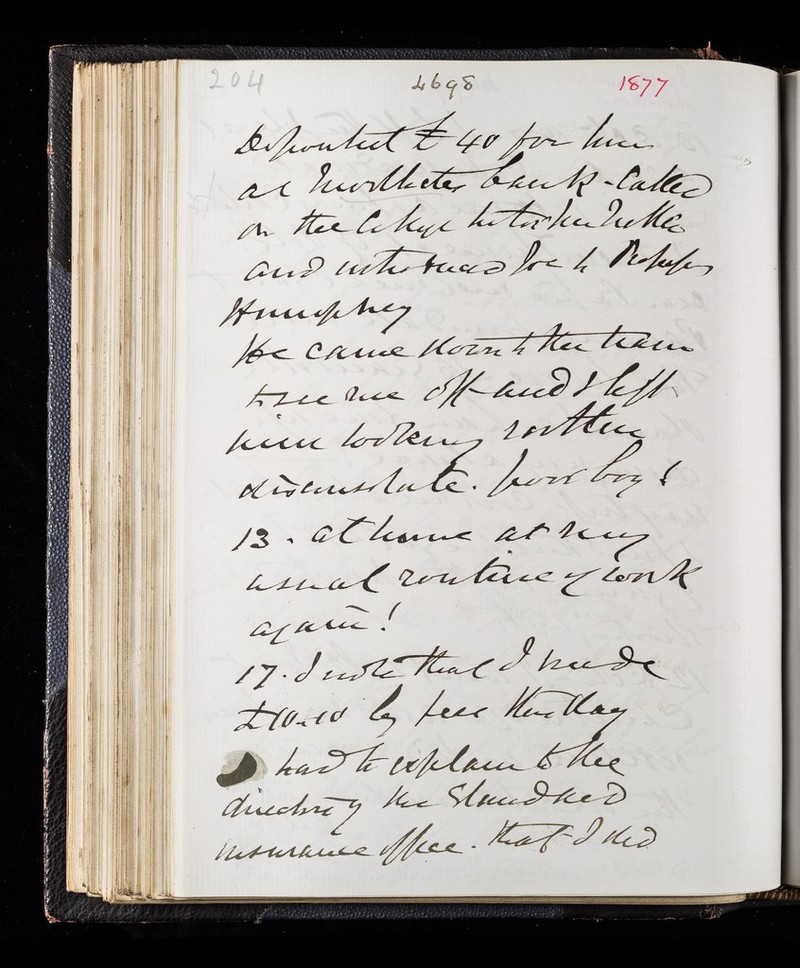 204 4698 1877
Deposited £40 for him
at Bank - Called
on the College
and introduced Joe to Professor
Humphrey
He came down to the train
to see me off and I left
him looking rather
disconsolate. poor boy!
13. at home at my
usual routine of work
again!
17. I note that I made
£10-10 by fees this day
had to explain to the
directors of the Standard
insurance office. that I did